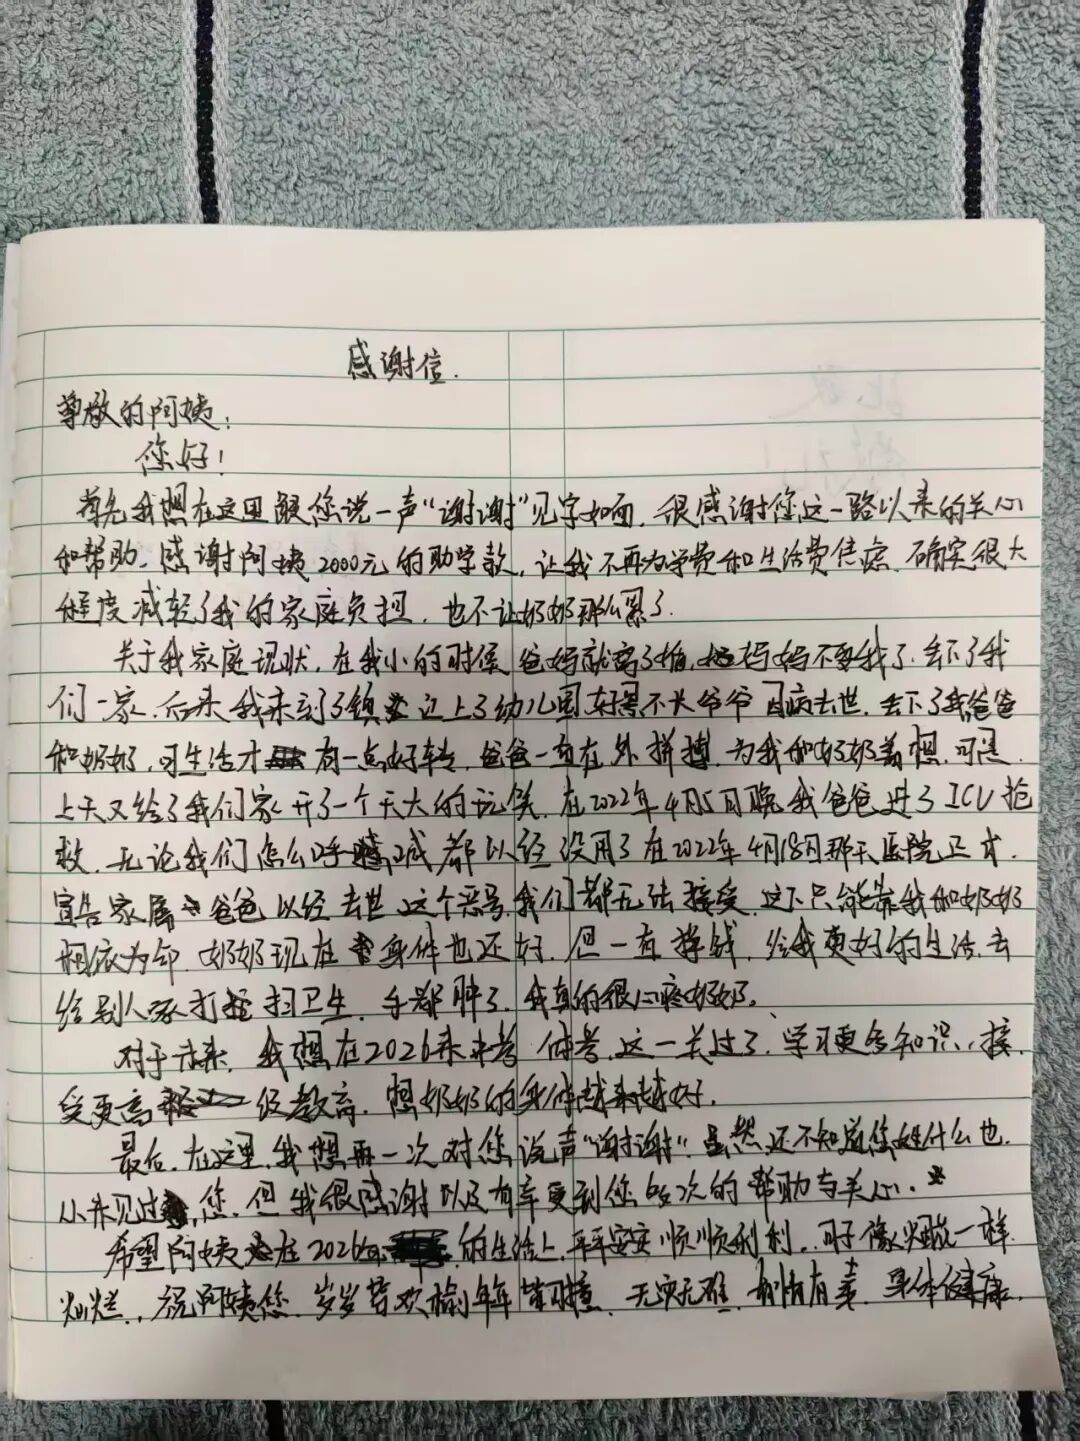 感谢信.
尊敬的阿姨:
您好!
首先我想在这里跟您说一声“谢谢”见字如面,很感谢您这一路以来的关心
和帮助.感谢阿姨2000元的助学款,让我不再为学费和生活费焦虑.确实很大
程度减轻了我的家庭负担,也不让奶奶那么累了.
关于我家庭现状,在我小的时候爸妈就离了婚,妈妈不要我了.丢下了我
们一家,后来我来到了镇边上了幼儿园好景不长爷爷因病去世.丢下了我爸爸
和奶奶,可生活才有一点好转,爸爸一直在外拼搏,为我和奶奶着想,可是
上天又给了我们家开了一个天大的玩笑.在2022年4月5日晚我爸爸进了ICU抢
救.无论我们怎么呼喊都以经没用了在2022年4月18日那天医院正式
宣告家属爸爸以经去世这个恶号,我们都无法接受.这下只能靠我和奶奶
相依为命.奶奶现在身体也还好.但一直挣钱,给我更好的生活.去
给别人家打扫卫生,手都肿了,我真的很心疼奶奶.
对于未来,我想在2026来中考,这一关过了,学习更多知识,接
受更高教育.想奶奶的身体越来越好.
最后,在这里,我想再一次对您说声“谢谢”.虽然还不知道您姓什么也
从未见过您.但我很感谢以及有幸受到您多次的帮助与关心.
希望阿姨在2026的生活上,平平安安顺顺利利,日子像烟花一样
灿烂.,祝阿姨您岁岁皆欢愉年年皆.无灾无难.身体健康.